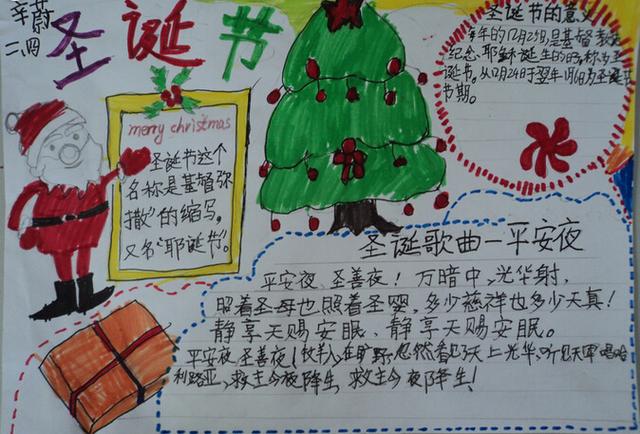 辛蔚
二、四
圣诞节
圣诞节的意义
每年的12月25日,是基督教
纪念耶稣诞生的日,称为圣
诞节。从12月24日于翌年1月6日为圣诞节
节期。
merry christmas
圣诞节这个
名称是“基督弥
撒”的缩写。
又名“耶诞节”。
圣诞歌曲—平安夜
平安夜、圣善夜!万暗中,光华射,
照着圣母也照着圣婴,多少慈祥也多少天真!
静享天赐安眠、静享天赐安眠。
平安夜,圣善夜!牧羊人,在旷野,忽然看见了天上光华,听见天军唱哈
利路亚,救主今夜降生,救主今夜降生!